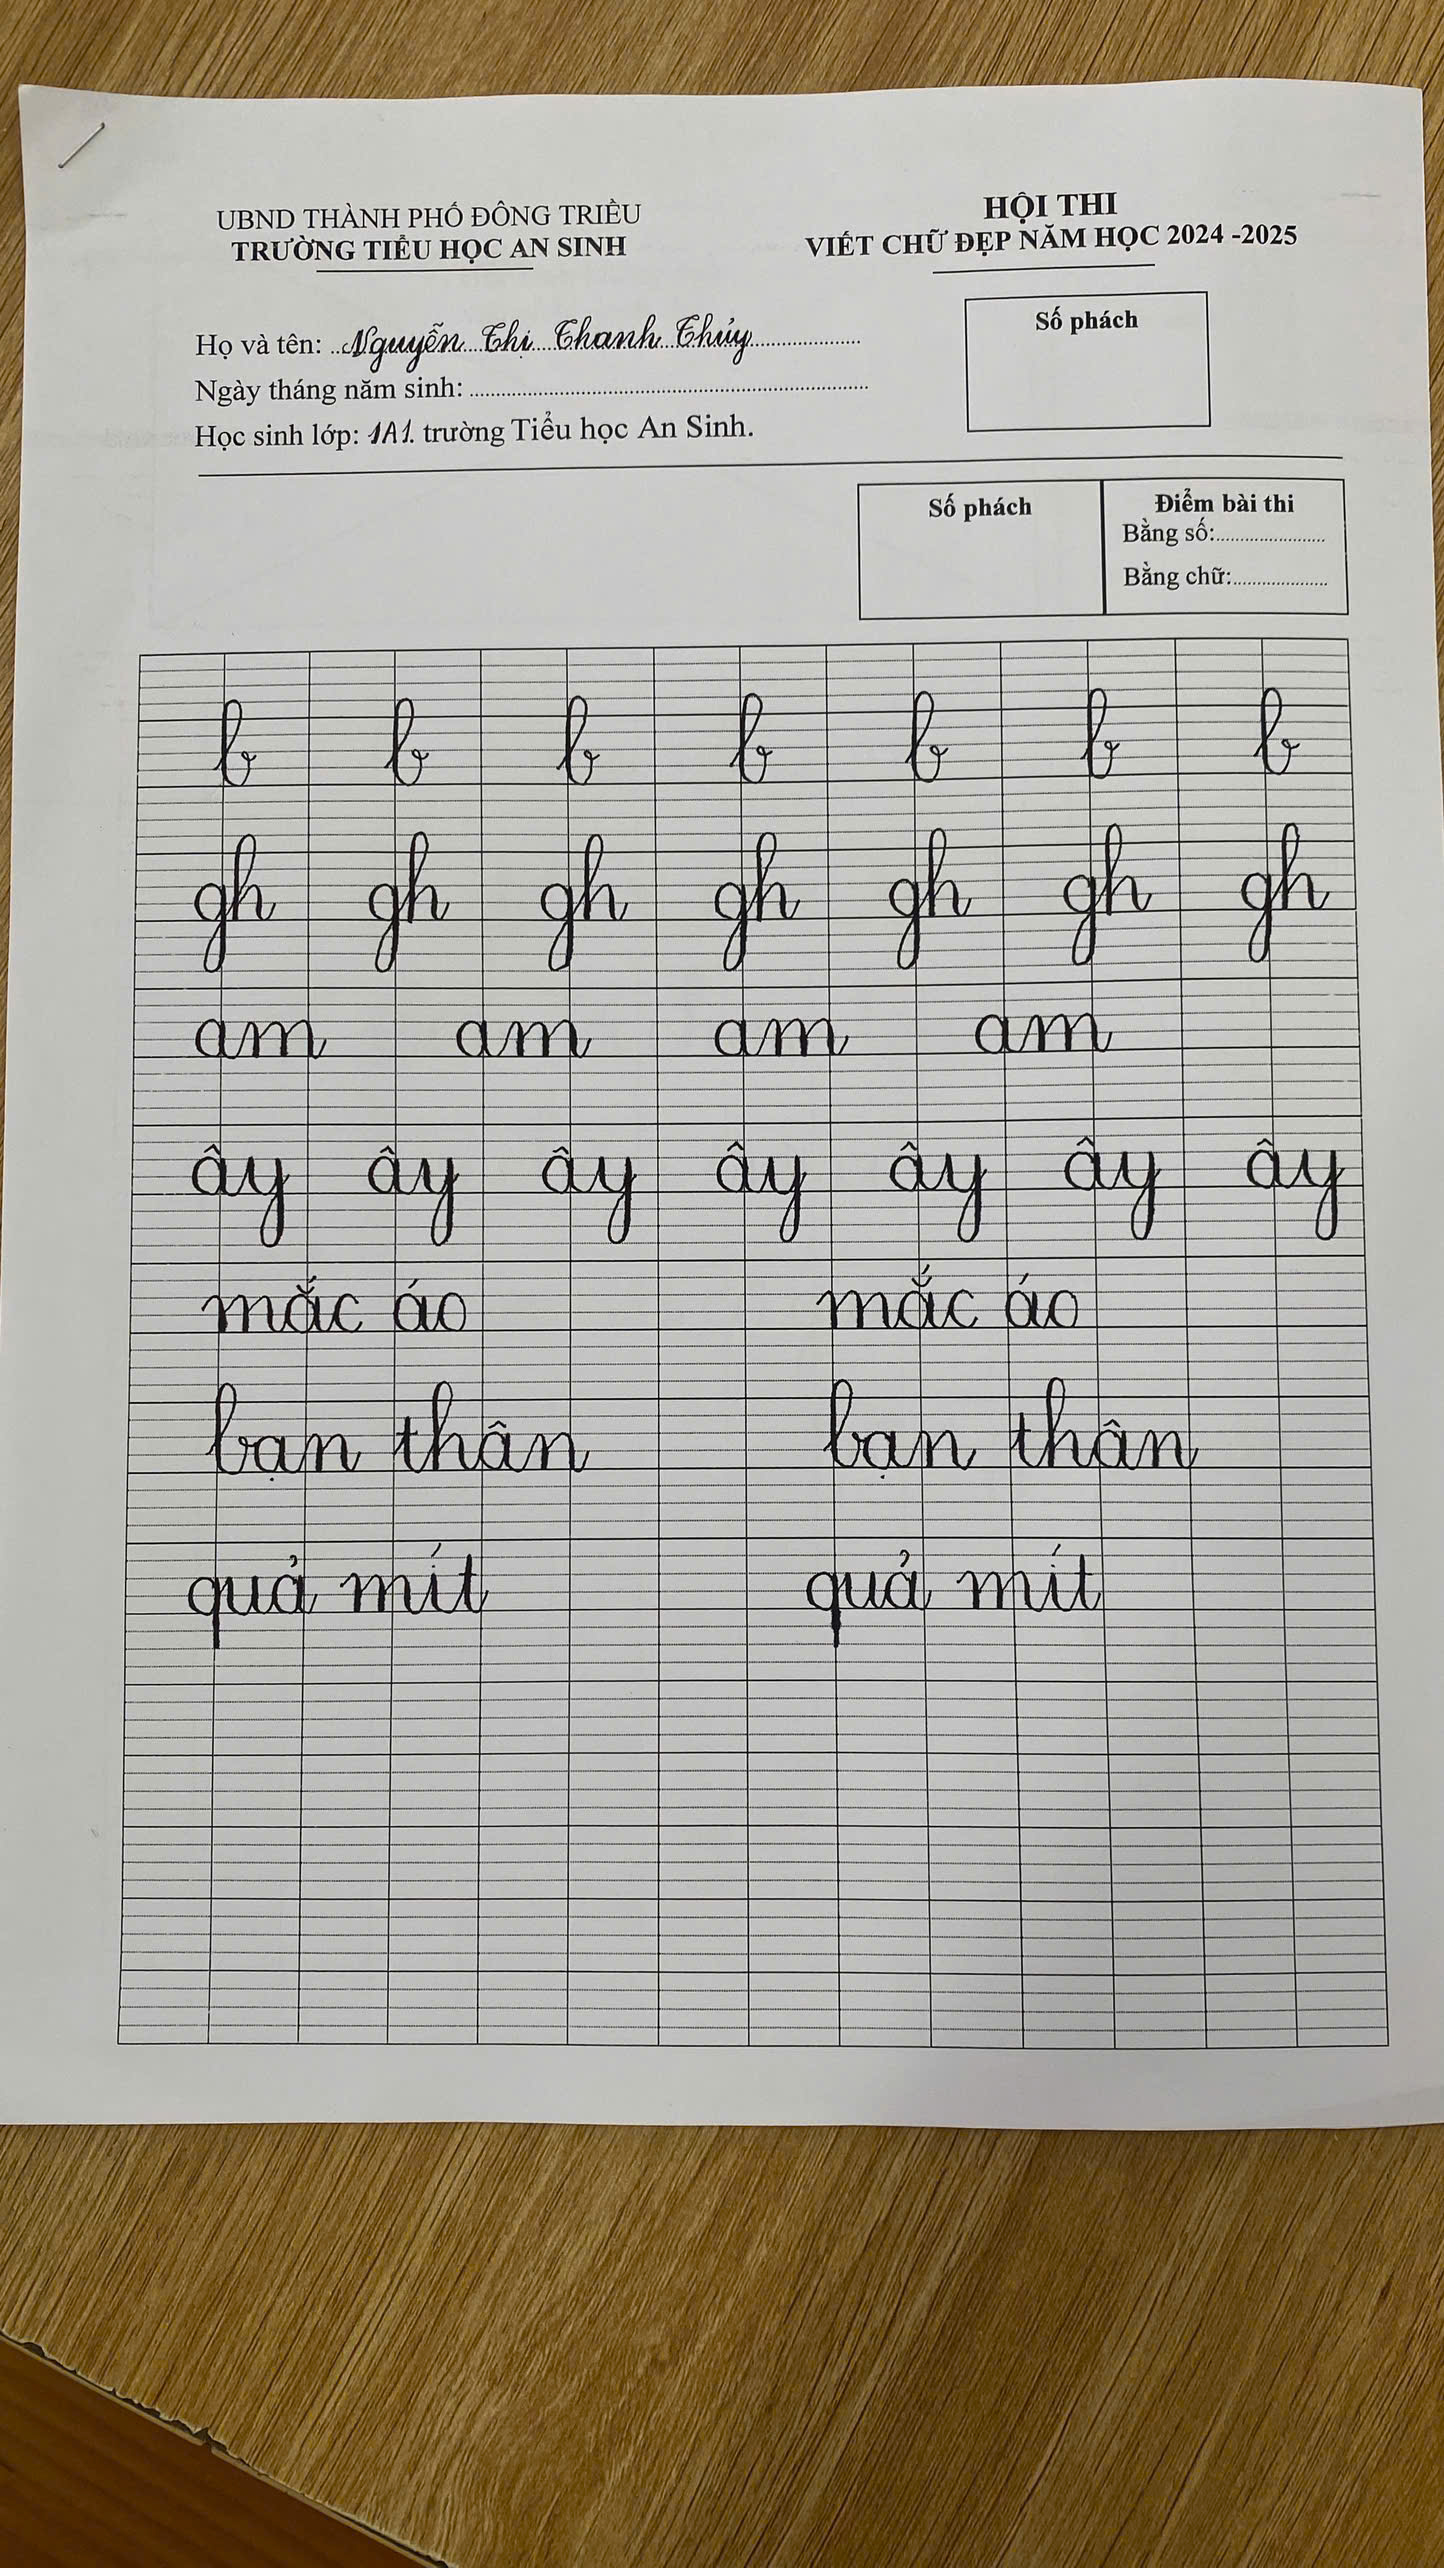 UBND THÀNH PHỐ ĐÔNG TRIỀU
TRƯỜNG TIỂU HỌC AN SINH
HỘI THI
VIẾT CHỮ ĐẸP NĂM HỌC 2024 -2025
Họ và tên: Nguyễn Thị Thanh Thủy
Ngày tháng năm sinh:
Học sinh lớp: 1A1. trường Tiểu học An Sinh.
Số phách
Số phách
Điểm bài thi
Bằng số:
Bằng chữ:
b b b b b b b
gh gh gh gh gh gh gh
am am am am
ây ây ây ây ây ây ây
mắc áo mắc áo
bạn thân bạn thân
quả mít quả mít